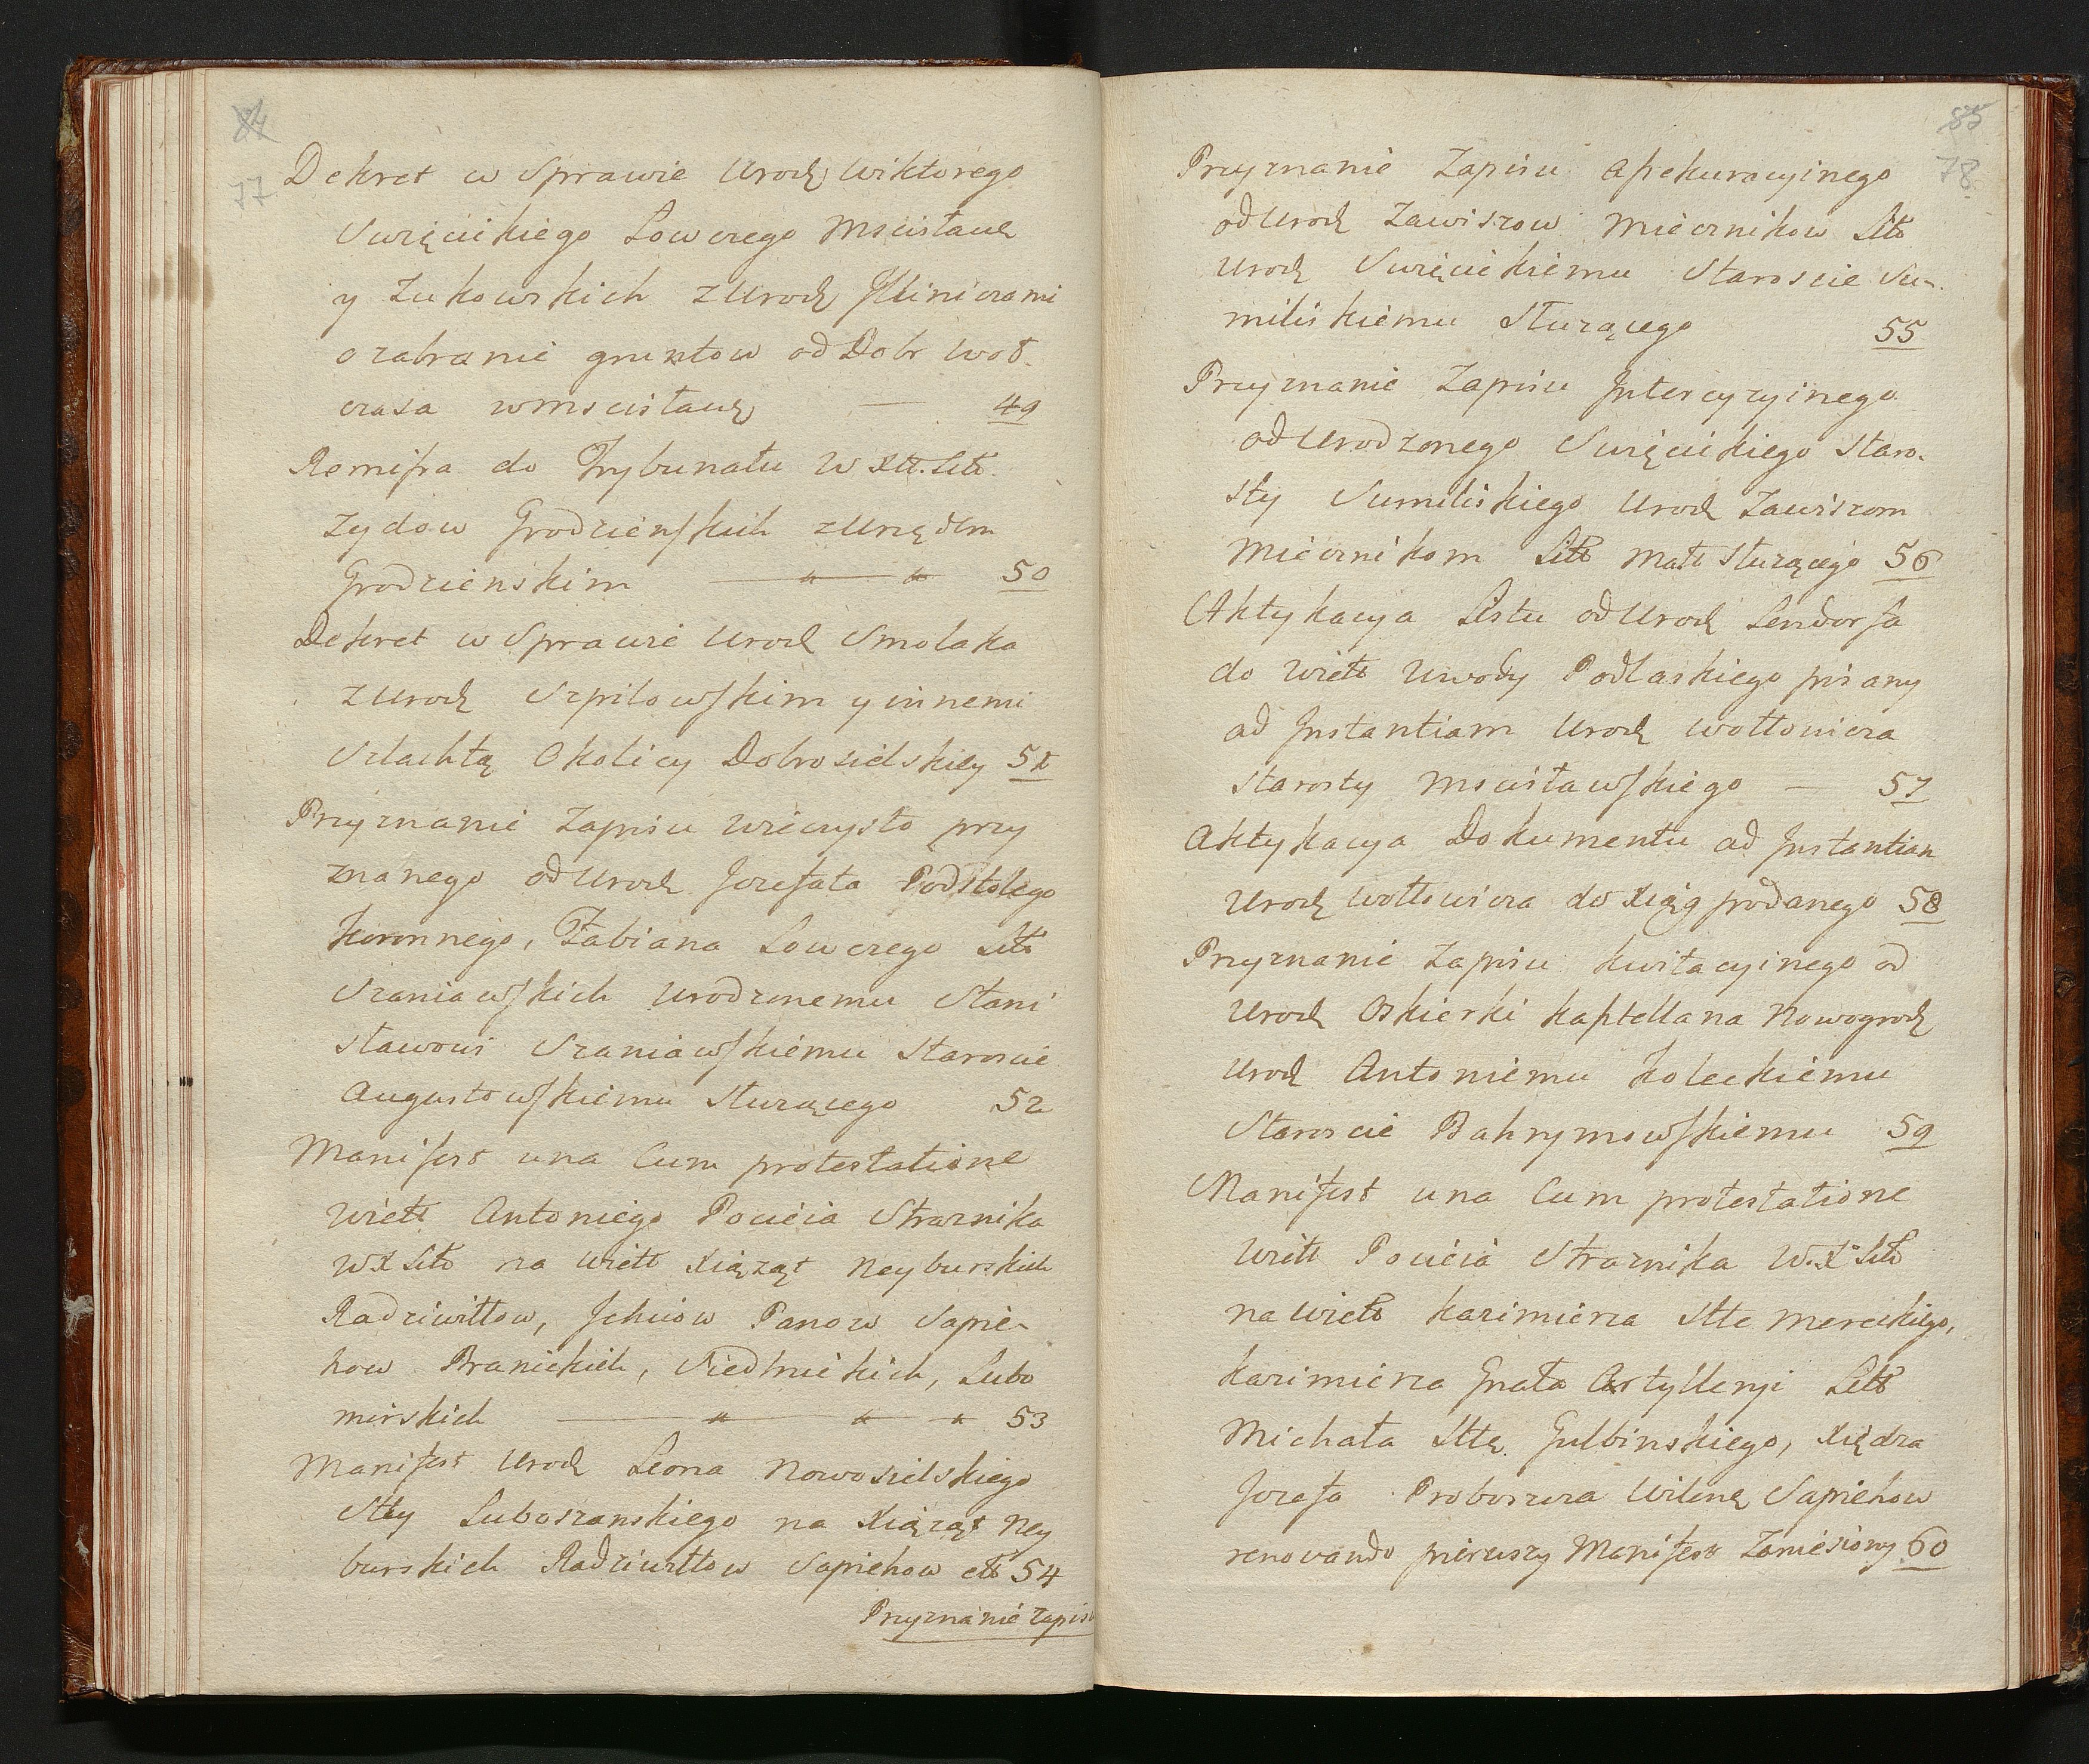 84
77
Dekret w Sprawie Urodz Wiktorego
Swięcickiego Łowczego Mscisławz
y Zukowskich z Urodz Hliniczami
o zabranie gruntow od Dobr Woł.
czasa w Mscisławz — 49
Remissa do Trybunału W Xtt. Litt.
Zydow Grodzienskich z Urzędem
Grodzienskim — " — " 50
Dekret w Sprawie Urodz Smolaka
z Urodz Szpilowskim y innemi
Szlachtą Okolicy Dobrosielskiey 51
Przyznanie Zapisu wieczysto przy
znanego od Urodz Jozefata Podstolego
Koronnego, Fabiana Łowczego Litt
Szaniawskich Urodzonemu Stani
sławowi Szaniawskiemu Staroscie
Augustowskiemu Służącego 52
Manifest una Cum protestatione
Wiełł Antoniego Pocieia Straznika
W X Litt na Wiełł Xiążąt Neyburskich
Radziwiłłow, Ichmciow Panow Sapie-
how Branickich, Siedlnickich, Lubo
mirskich — " — " — " 53
Manifest Urodz Leona Nowosielskiego
Stty Luboszanskiego na Xiążąt Ney
burskich Radziwiłłow Sapiehow ett 54
Przyznanie Zapisu
85
78
Przyznanie Zapisu Assekuracyinego
od Urodz Zawiszow Miecznikow Litt
Urodz Swięcickiemu Staroscie Su-
miliskiemu Służącego 55
Przyznanie Zapisu Intercyzyinego
od Urodzonego Swięcickiego Staro-
sty Sumiliskiego Urodz Zawiszom
Miecznikom Litt Małż Służącego 56
Aktykacya Listu od Urodz Lendorfa
do Wiełł Uwody Podlaskiego pisany
ad Instantiam Urodz Wołłowicza
Starosty Mscisławskiego — 57
Aktykacya Dokumentu ad Instantiam
Urodz Wołłowicza do Xiąg podanego 58
Przyznanie Zapisu Kwitacyinego od
Urodz Oskierki Kasztellana Nowogrodz
Urodz Antoniemu Koleckiemu
Staroscie Bahrymowskiemu 59
Manifest una Cum protestatione
Wiełł Pocieia Straznika W. X Litt
na Wiełł Kazimierza Stte Mereckiego,
Kazimierza Gnała Artylleryi Litt
Michała Sttę Gulbinskiego, Xiędza
Jozefa Proboszcza Wilenz Sapiehow
renovando pierwszy Manifest Zaniesiony 60